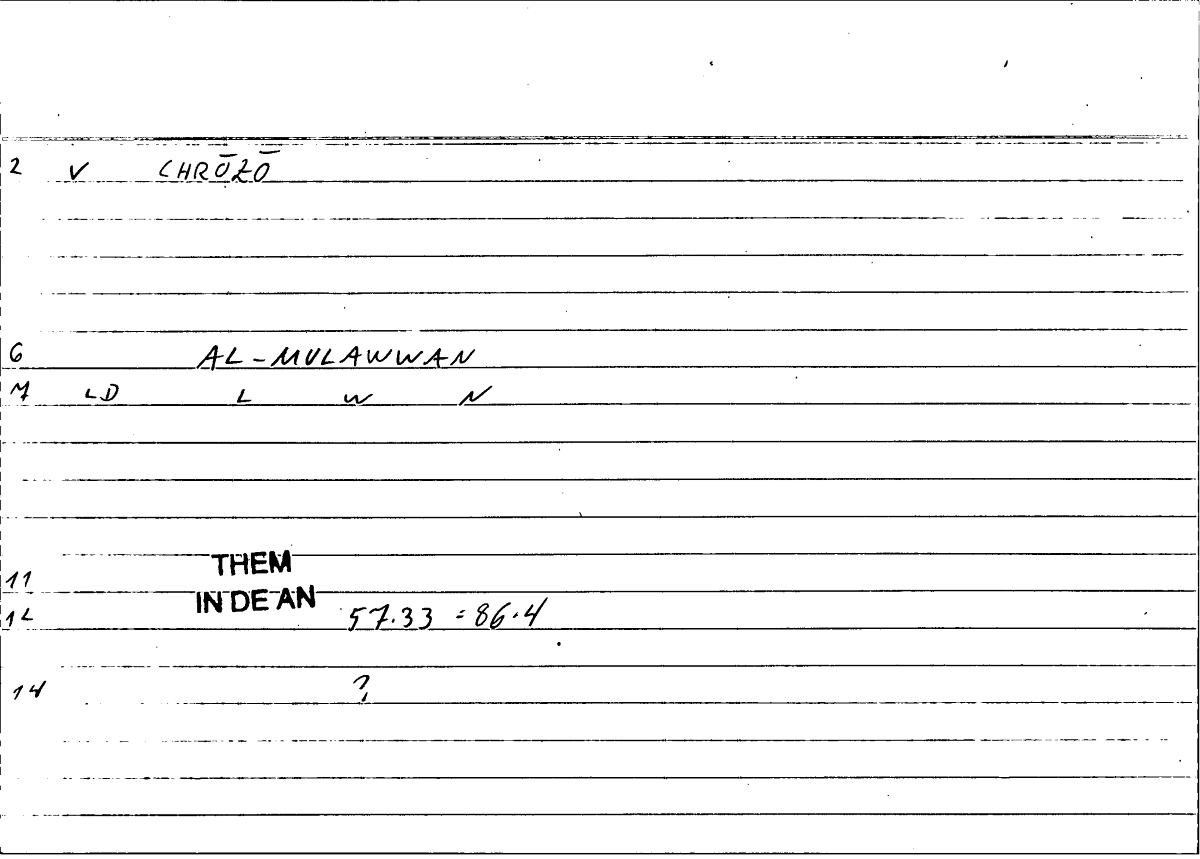 2 V CHRŌZŌ
6 AL-MULAWWAN
7 LD L W N
THEM
11
IN DE AN
12 57.33 = 86.4
14 ?